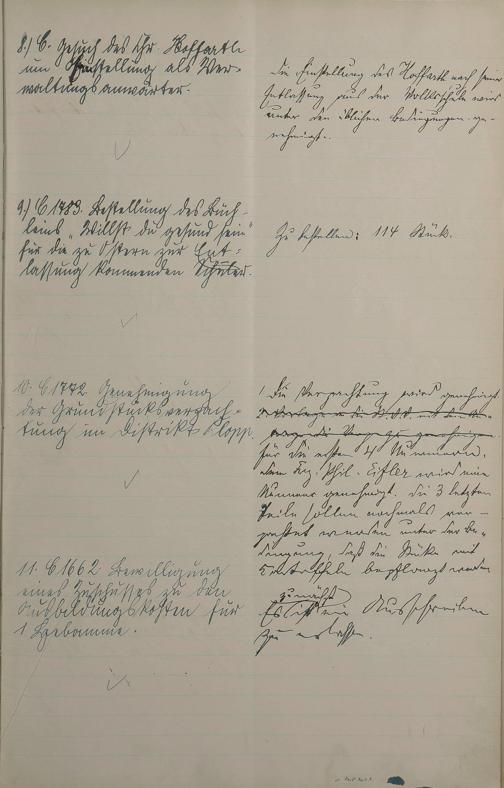 8.) C. Gesuch des Chr. Hoffarth
um Einstellung als Ver-
waltungsanwärter.
Die Einstellung des Hoffarth nach seiner
Entlassung aus der Volksschule wird
unter den üblichen Bedingungen ge-
nehmigt.
9.) C 1783. Bestellung des Büch-
leins „Willst du gesund sein"
für die zu Ostern zur Ent-
lassung kommenden Schüler.
Zu bestellen: 114 Stück.
10. C 1772. Genehmigung
der Grundstücksverpach-
tung im Distrikt Klopp.
1 Die Verpachtung wird genehmigt
für die ersten 4 Nummern,
dem Phil. wird eine
Nummer genehmigt. Die 3 letzten
Teile sollen nochmals ver-
pachtet werden unter der Be-
dingung, daß die Stücke mit
Kartoffeln bepflanzt werden
11. C 1662. Bewilligung
eines Zuschusses zu den
Ausbildungskosten für
1 Hebamme.
zunächst
Es ist ein Ausschreiben
zu erlassen.